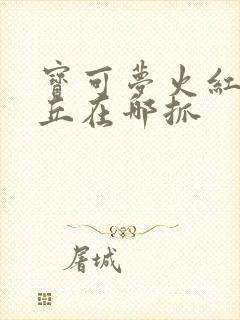 寶可夢火紅
丘在哪抓
屠城